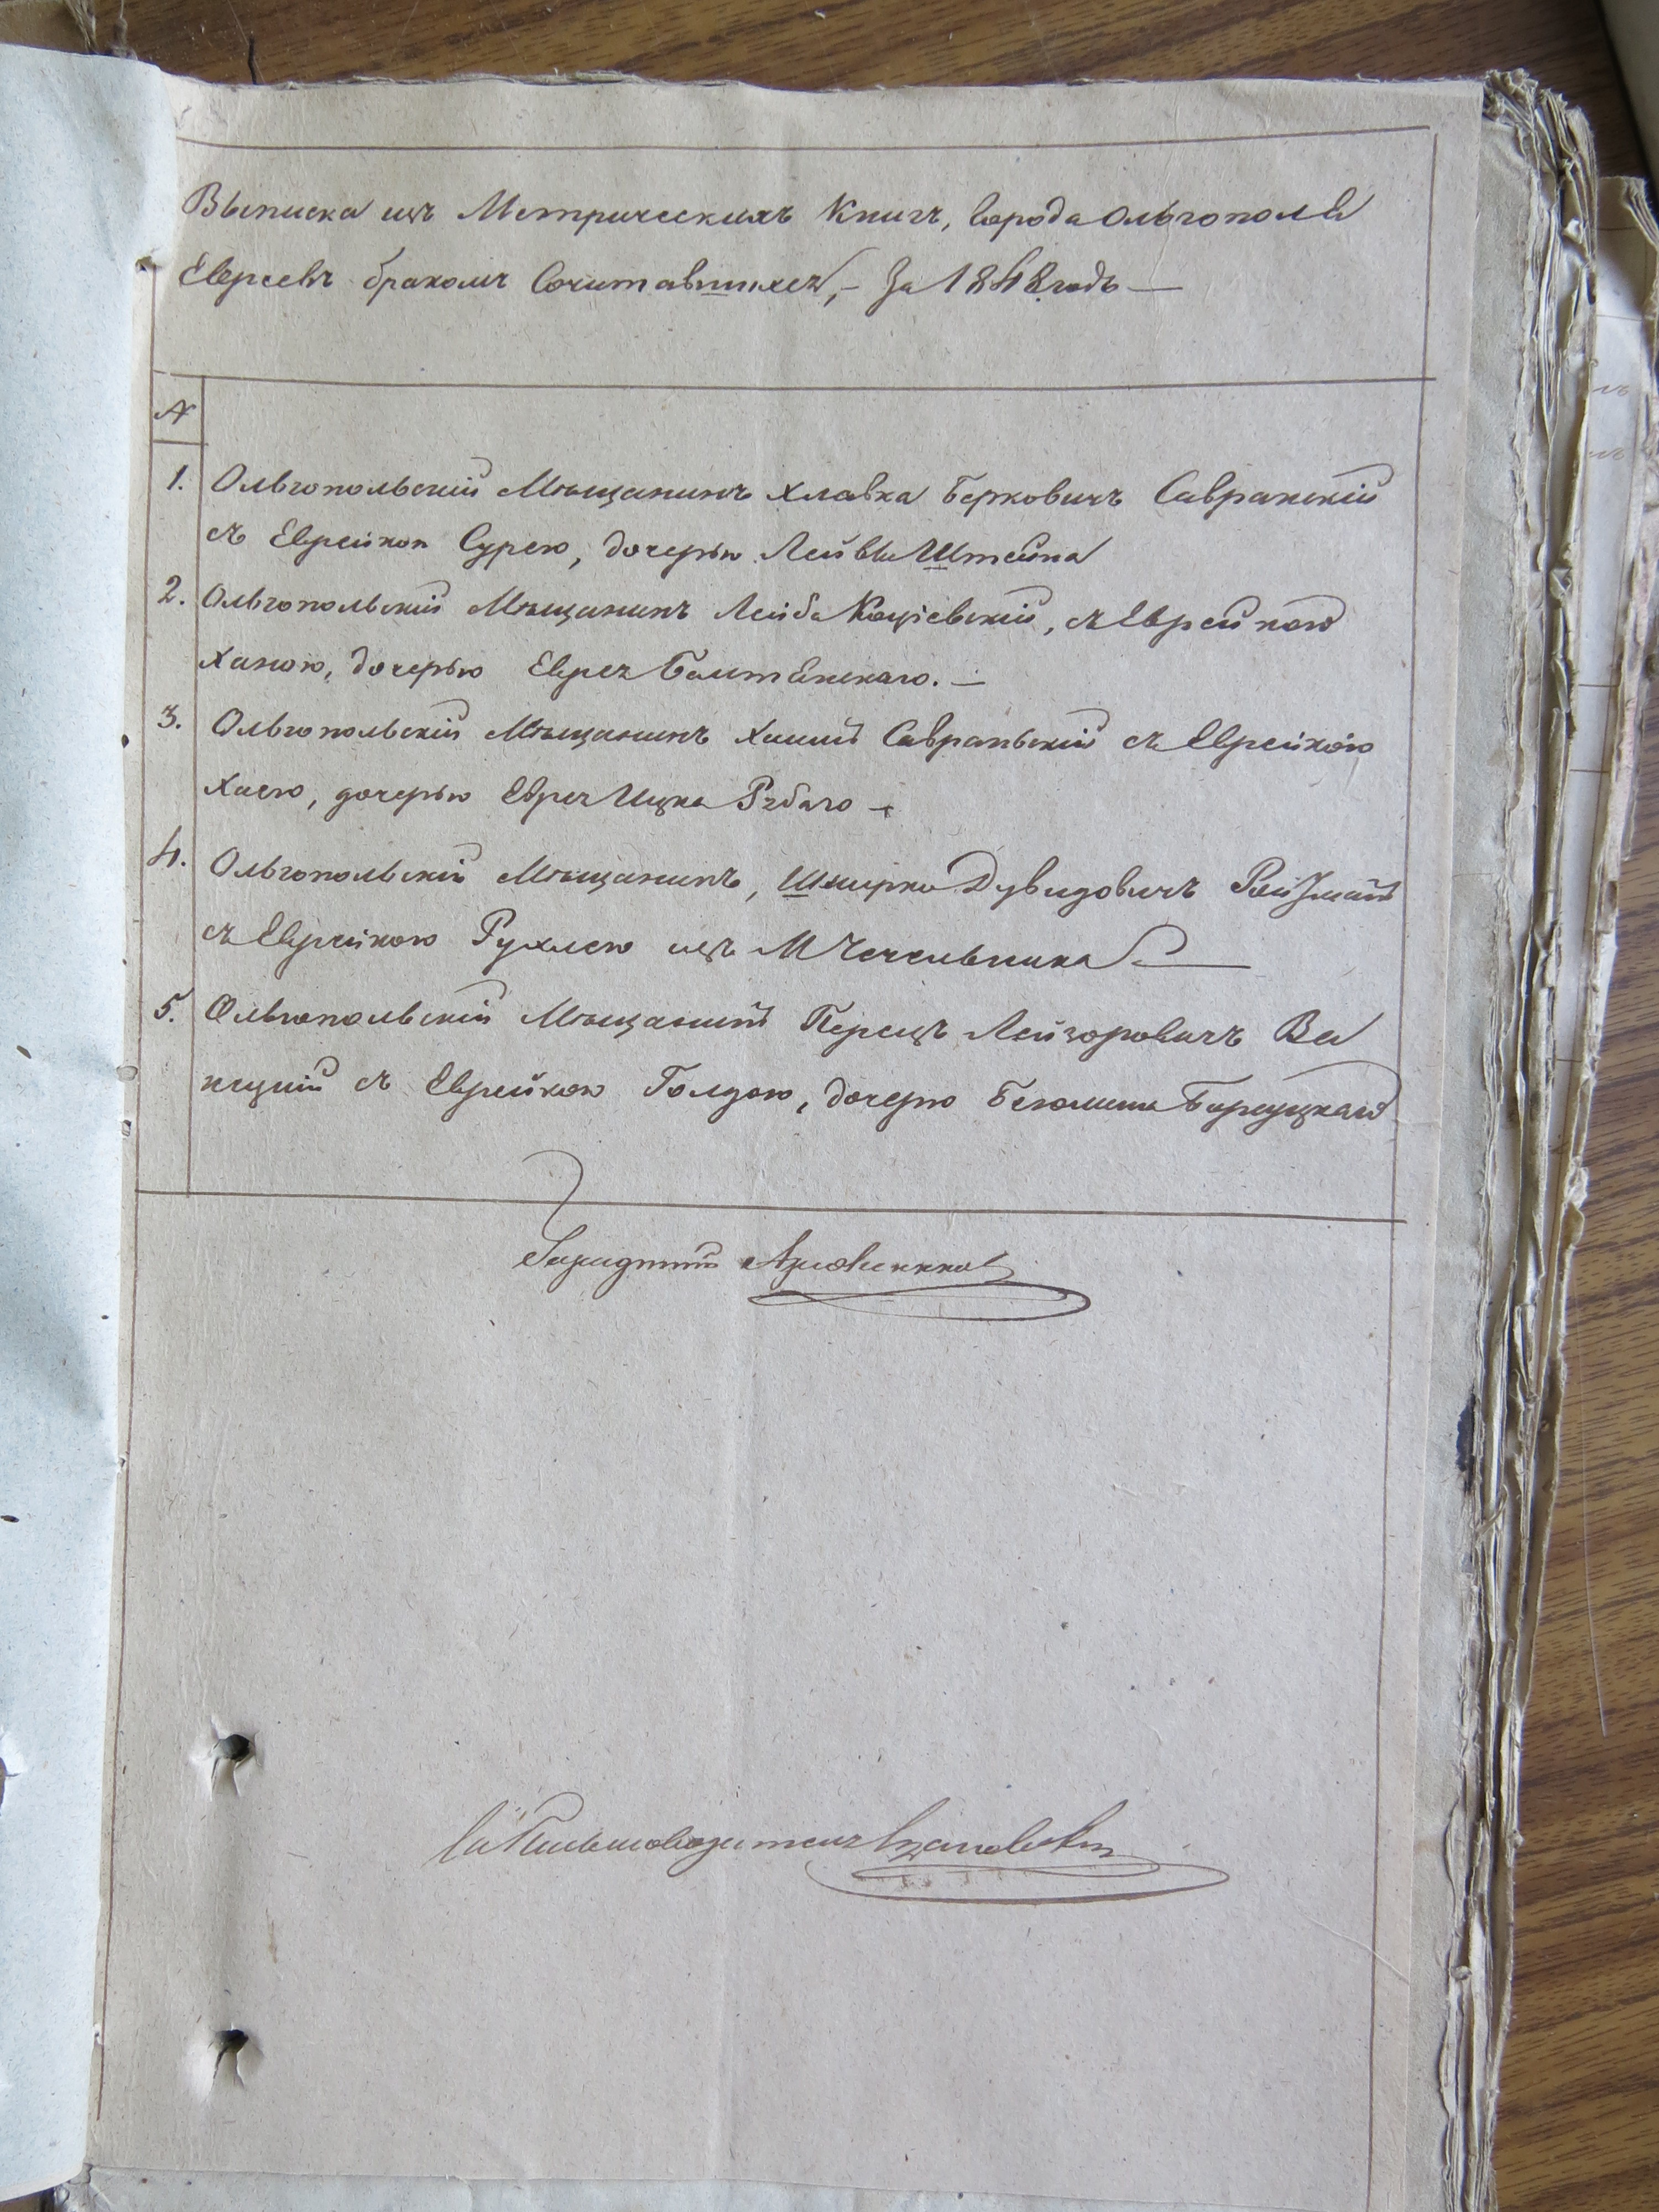 Выписка изъ Метрическихъ Книгъ, города Ольгополя
Евреевъ бракомъ Сочитавшихся, – За 1848 годъ —
№
1. Ольгопольскій Мѣщанинъ Хлавка Берковичъ Савранскій
съ Еврейкою Сурею, дочерью Лейвы Штейна
2. Ольгопольскій Мѣщанинъ Лейба Коціевскій, съ Еврейкою
Ханою, дочерью Еврея Балтянскаго. —
3. Ольгопольскій Мѣщанинъ Хаимъ Савраньскій съ Еврейкою
Хаею, дочерью Еврея Ицка Рябаго —
4. Ольгопольскій Мѣщанинъ, Шмерко Дувидовичъ Ройзманъ
съ Еврейкою Рухлею изъ М Чечельника —
5. Ольгопольскій Мѣщанинъ Перецъ Лейзоровичъ Ве
нецкій съ Еврейкою Голдою, дочерю Беюмина Барецкаго